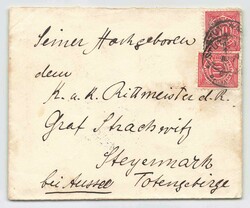 Seiner Hochgeboren
dem
K. u. K. Rittmeister d. R.
Graf Strachwitz
Steyermark
bei Aussee Totengebirge